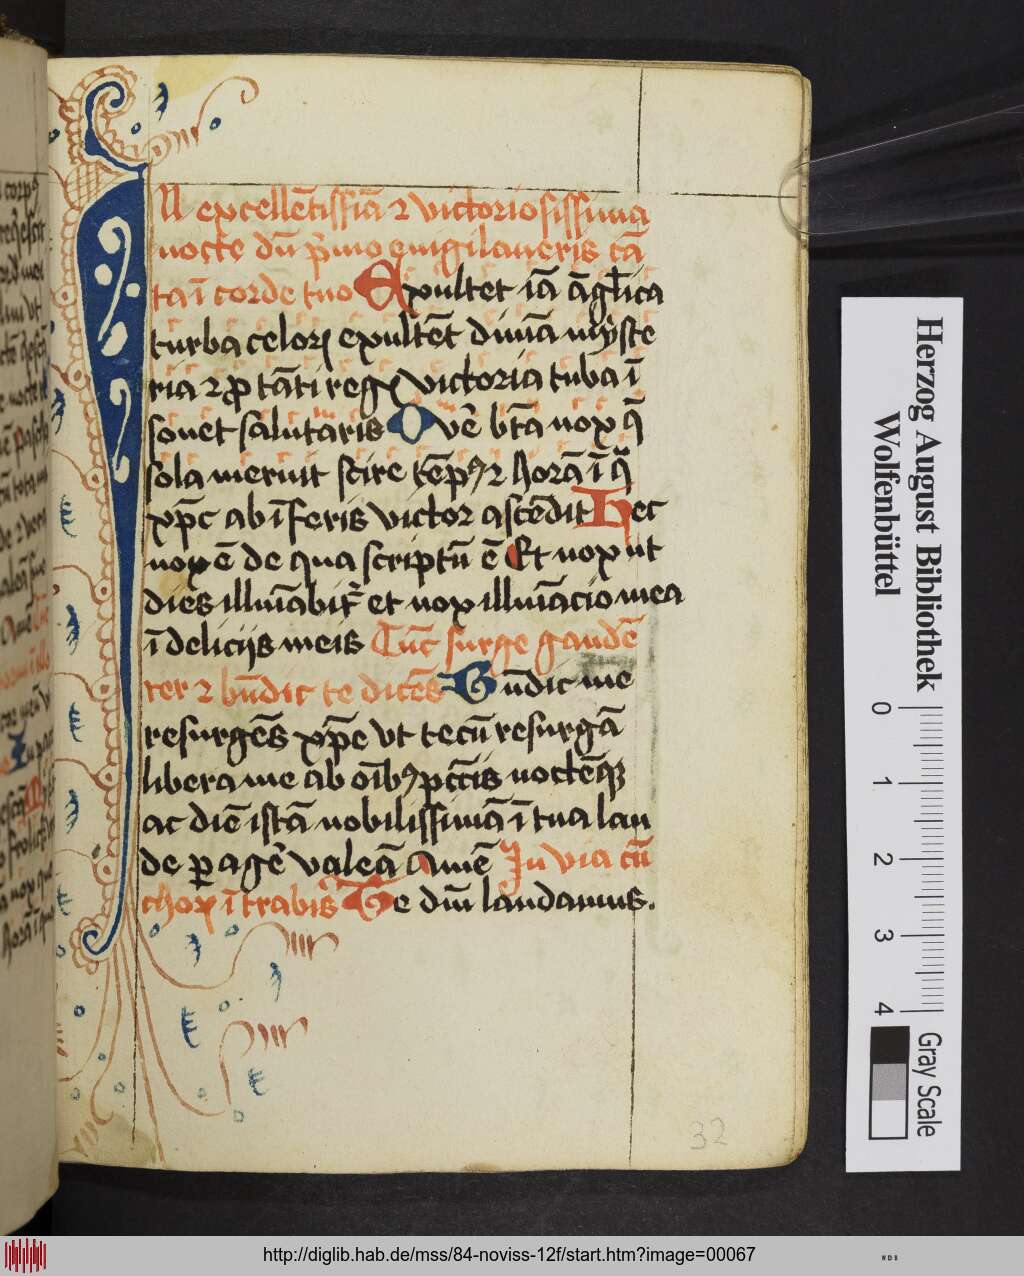 In excellētissīa ⁊ victoriosissima
nocte dū p̄mo euigilaueris cā
ta ī corde tuo Exultet iā āglica
turba celoꝝ exultēt diuīa myste
ria ⁊ ꝓ tāti regꝭ victoria tuba ī
sonet salutaris O vē bt̄a nox q̄
sola meruit scire tēpꝰ ⁊ horā ī q̄
xp̄c ab īferis victor ascēdit Hec
nox ē de qua scriptū ē Et nox ut
dies illuīabit᷑ et nox illuīacio mea
ī delicijs meis Tūc surge gaudē
ter ⁊ bn̄dic te dicēs Bn̄dic me
resurgēs xp̄e vt tecū resurgā
libera me ab oībꝰ pctīs noctēqꝫ
ac diē istā nobilissimā ī tua lau
de ꝑagē valeā Amē In via cū
choꝝ ītrabis Te dm̄ laudamus.
32
Herzog August Bibliothek
Wolfenbüttel
0 1 2 3 4
Gray Scale
http://diglib.hab.de/mss/84-noviss-12f/start.htm?image=00067